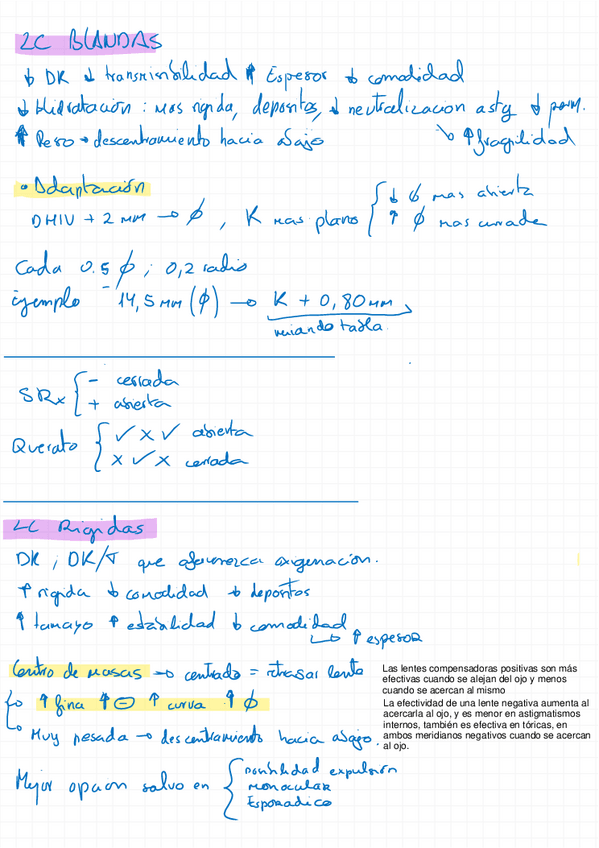 LC BLANDAS
↓ DK ↓ transmisibilidad ↑ Espesor ↓ comodidad
↓ Hidratación : mas rigida, depositos, ↓ neutralizacion astg ↓ perm.
↑ Peso → descentramiento hacia abajo ↑ fragilidad
• Adaptación
DHIV + 2 mm → ϕ , K mas plano { ↓ ϕ mas abierta
↑ ϕ mas curvada
Cada 0.5 ϕ ; 0,2 radio
ejemplo 14,5 mm (ϕ) → K + 0,80 mm
mirando tabla.
SRx { - cerrada
+ abierta
Querato { ✓ x ✓ abierta
x ✓ x cerrada
LC Rigidas
DK ; DK/T que favorezca oxigenación.
↑ rigida ↓ comodidad ↓ depositos
↑ tamaño ↑ estabilidad ↓ comodidad
↳ ↑ espesor
Centro de masas → centrado = retrasar lente
↑ fina ↑ ⊖ ↑ curva ↑ ϕ
Muy pesada → descentramiento hacia abajo.
Las lentes compensadoras positivas son más
efectivas cuando se alejan del ojo y menos
cuando se acercan al mismo
La efectividad de una lente negativa aumenta al
acercarla al ojo, y es menor en astigmatismos
internos, también es efectiva en tóricas, en
ambos meridianos negativos cuando se acercan
al ojo.
Mejor opcion salvo en { posibilidad expulsión
monocular
Esporadico